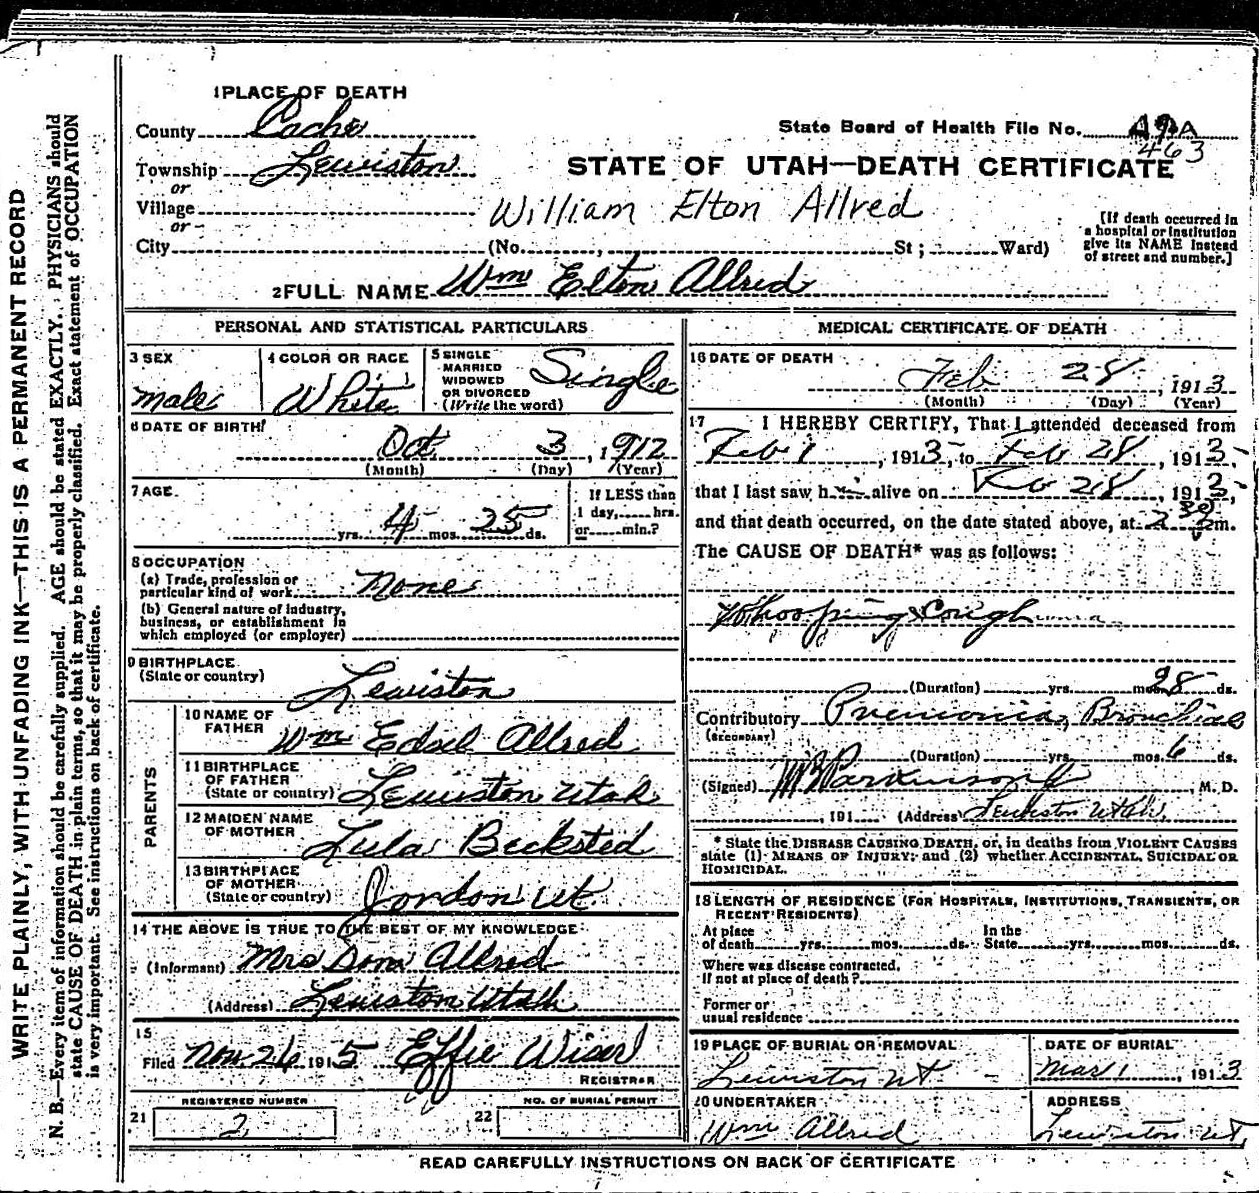 1 PLACE OF DEATH
County Cache
State Board of Health File No. 49A
463
Township Lewiston
or
STATE OF UTAH—DEATH CERTIFICATE
Village
or
William Elton Allred
City (No. , St ; Ward)
[If death occurred in a hospital or institution give its NAME instead of street and number.]
2 FULL NAME Wm Elton Allred
PERSONAL AND STATISTICAL PARTICULARS
3 SEX
male
4 COLOR OR RACE
White
5 SINGLE MARRIED WIDOWED OR DIVORCED (Write the word)
Single
6 DATE OF BIRTH
Oct 3, 1912
(Month) (Day) (Year)
7 AGE
yrs. 4 mos. 25 ds.
If LESS than 1 day, hrs. or min.?
8 OCCUPATION
(a) Trade, profession or particular kind of work None
(b) General nature of industry, business, or establishment in which employed (or employer)
9 BIRTHPLACE
(State or country) Lewiston
PARENTS
10 NAME OF FATHER Wm Edsel Allred
11 BIRTHPLACE OF FATHER (State or country) Lewiston Utah
12 MAIDEN NAME OF MOTHER Lula Becksted
13 BIRTHPLACE OF MOTHER (State or country) Jordon Ut
14 THE ABOVE IS TRUE TO THE BEST OF MY KNOWLEDGE
(Informant) Mrs Allred
(Address) Lewiston Utah
15
Filed Nov 26 1915 Effie Wiser
REGISTRAR
REGISTERED NUMBER
21 2
NO. OF BURIAL PERMIT
22
MEDICAL CERTIFICATE OF DEATH
16 DATE OF DEATH
Feb 28, 1913
(Month) (Day) (Year)
17 I HEREBY CERTIFY, That I attended deceased from
Feb 1, 1913, to Feb 28, 1913,
that I last saw h alive on Feb 28, 1913,
and that death occurred, on the date stated above, at 2 30 m.
The CAUSE OF DEATH* was as follows:
Whooping Cough
(Duration) yrs. mos. 28 ds.
Contributory Pnemonia, Bronchial
(SECONDARY)
(Duration) yrs. mos. 6 ds.
(Signed) Parkinson, M. D.
, 191 (Address) Lewiston Utah.
* State the DISEASE CAUSING DEATH, or, in deaths from VIOLENT CAUSES
state (1) MEANS OF INJURY; and (2) whether ACCIDENTAL, SUICIDAL OR
HOMICIDAL.
18 LENGTH OF RESIDENCE (FOR HOSPITALS, INSTITUTIONS, TRANSIENTS, OR
RECENT RESIDENTS)
At place of death yrs. mos. ds. In the State yrs. mos. ds.
Where was disease contracted,
if not at place of death?
Former or
usual residence
19 PLACE OF BURIAL OR REMOVAL
Lewiston Ut
DATE OF BURIAL
Mar 1, 1913
20 UNDERTAKER
Wm Allred
ADDRESS
Lewiston Ut
READ CAREFULLY INSTRUCTIONS ON BACK OF CERTIFICATE
WRITE PLAINLY, WITH UNFADING INK—THIS IS A PERMANENT RECORD
N. B.—Every item of information should be carefully supplied. AGE should be stated EXACTLY. PHYSICIANS should
state CAUSE OF DEATH in plain terms, so that it may be properly classified. Exact statement of OCCUPATION
is very important. See instructions on back of certificate.